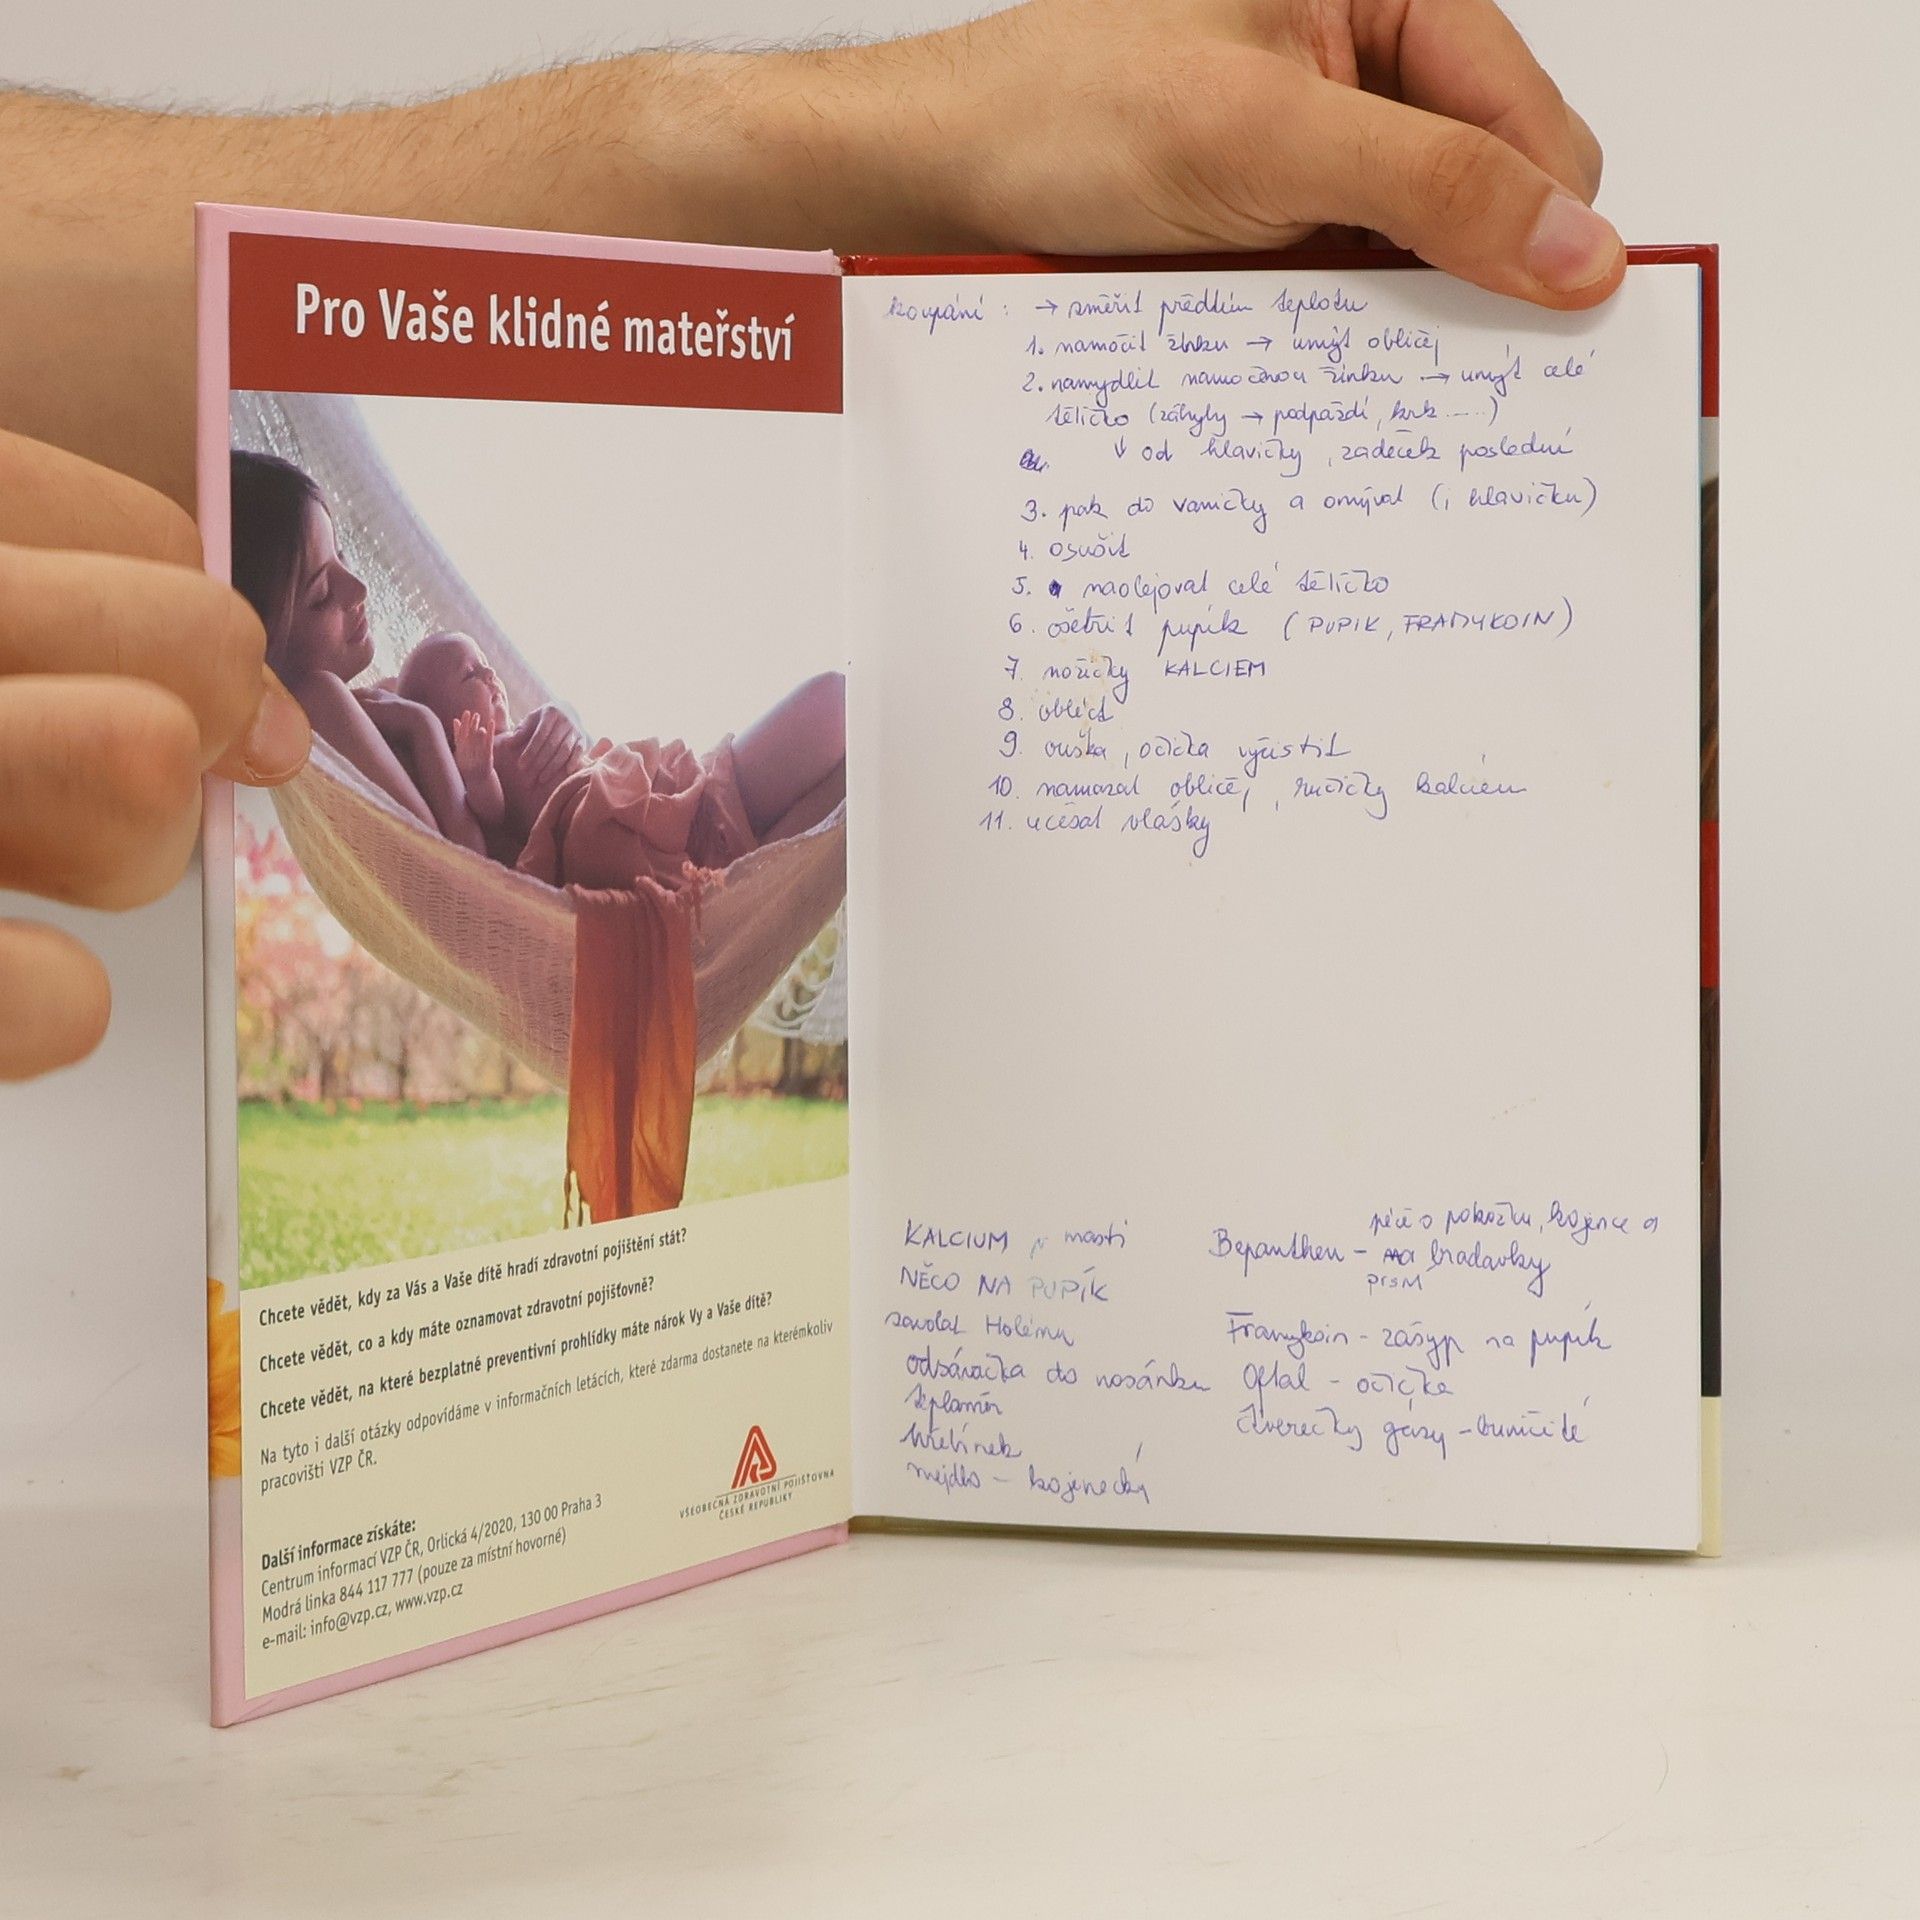 Pro Vaše klidné mateřství
Chcete vědět, kdy za Vás a Vaše dítě hradí zdravotní pojištění stát?
Chcete vědět, co a kdy máte oznamovat zdravotní pojišťovně?
Chcete vědět, na které bezplatné preventivní prohlídky máte nárok Vy a Vaše dítě?
Na tyto i další otázky odpovídáme v informačních letácích, které zdarma dostanete na kterémkoliv
pracovišti VZP ČR.
VŠEOBECNÁ ZDRAVOTNÍ POJIŠŤOVNA
ČESKÉ REPUBLIKY
Další informace získáte:
Centrum informací VZP ČR, Orlická 4/2020, 130 00 Praha 3
Modrá linka 844 117 777 (pouze za místní hovorné)
e-mail: info@vzp.cz, www.vzp.cz
koupání : → změřit předtím teplotu
1. namočit žínku → umýt obličej
2. namydlit namočenou žínku → umýt celé
tělíčko (záhyby → podpaždí, krk .....)
↓ od hlavičky, zadeček poslední
3. pak do vaničky a omývat (i hlavičku)
4. osušit
5. naolejovat celé tělíčko
6. ošetřit pupík (PUPIK, FRAMYKOIN)
7 nožičky KALCIEM
8. obléct
9. ouška, očička vyčistit
10. namazat obličej, ručičky kalciem
11. učesat vlásky
KALCIUM v masti
NĚCO NA PUPÍK
zavolat Holému
odsávačka do nosánku
teploměr
hřebínek
mejdlo - kojenecký
péče o pokožku, kojence a
Bepanthen - bradavky
prsní
Framykoin - zásyp na pupík
Oftal - očička
čtverečky gázy - buničité